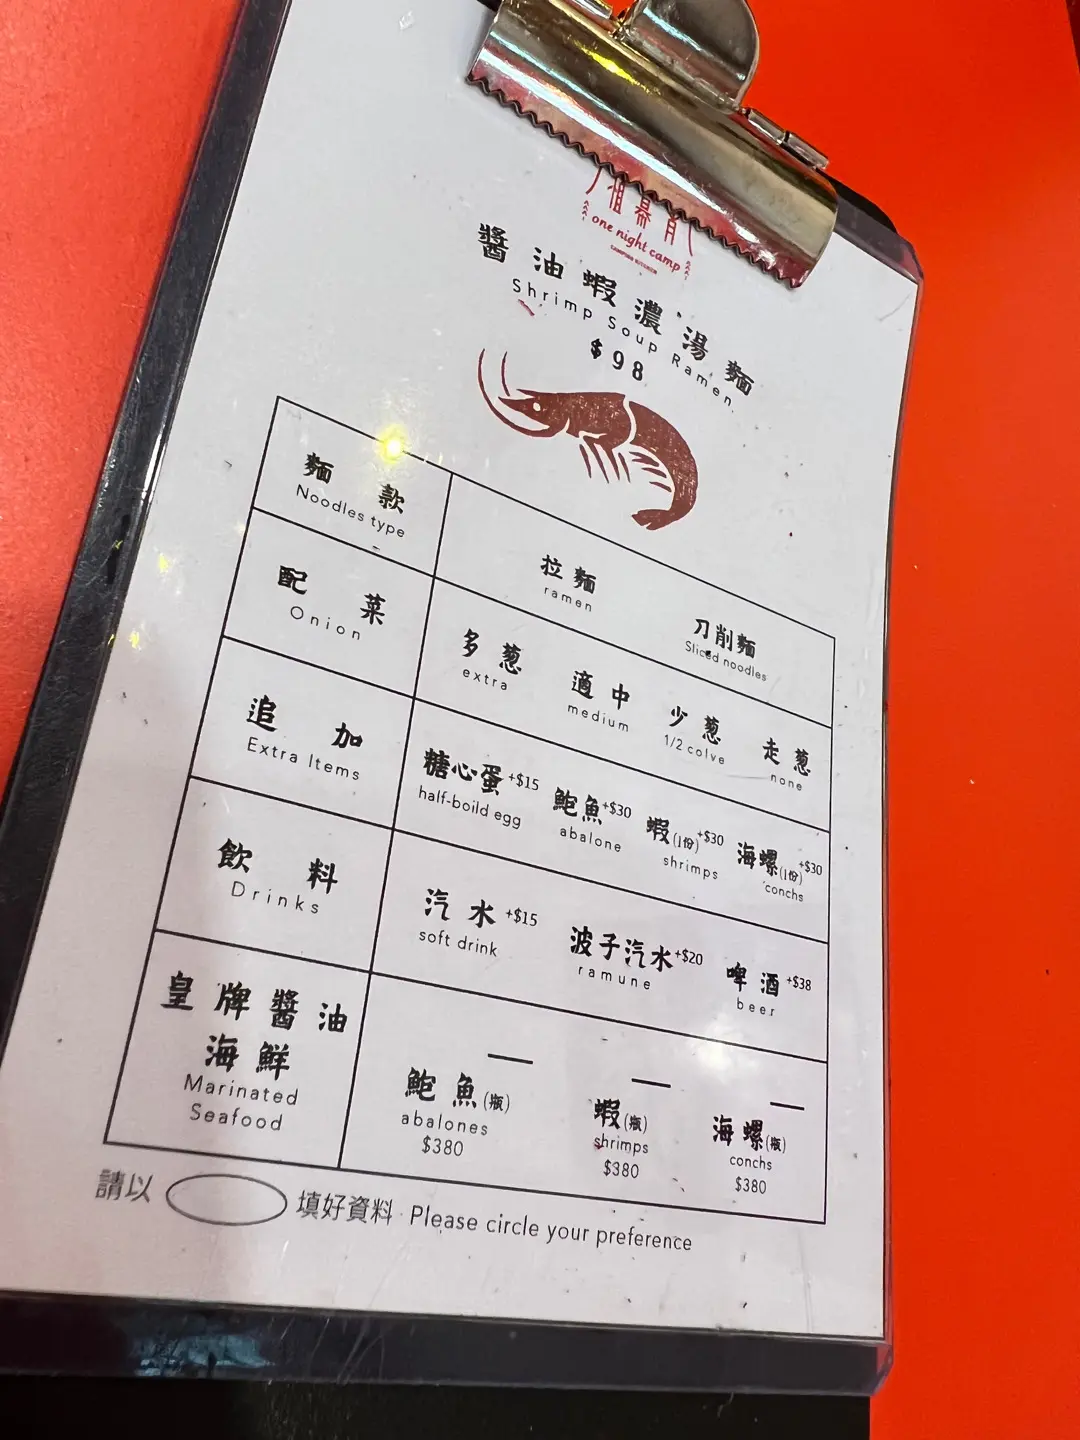 one night camp
醬油蝦濃湯麵
Shrimp Soup Ramen
$98
麵款
Noodles type
拉麵
ramen
刀削麵
Sliced noodles
配菜
Onion
多葱
extra
適中
medium
少葱
1/2 colve
走葱
none
追加
Extra Items
糖心蛋 +$15
half-boild egg
鮑魚 +$30
abalone
蝦(1份) +$30
shrimps
海螺(1份) +$30
conchs
飲料
Drinks
汽水 +$15
soft drink
波子汽水 +$20
ramune
啤酒 +$38
beer
皇牌醬油
海鮮
Marinated
Seafood
鮑魚(瓶)
abalones
$380
蝦(瓶)
shrimps
$380
海螺(瓶)
conchs
$380
請以 填好資料 Please circle your preference